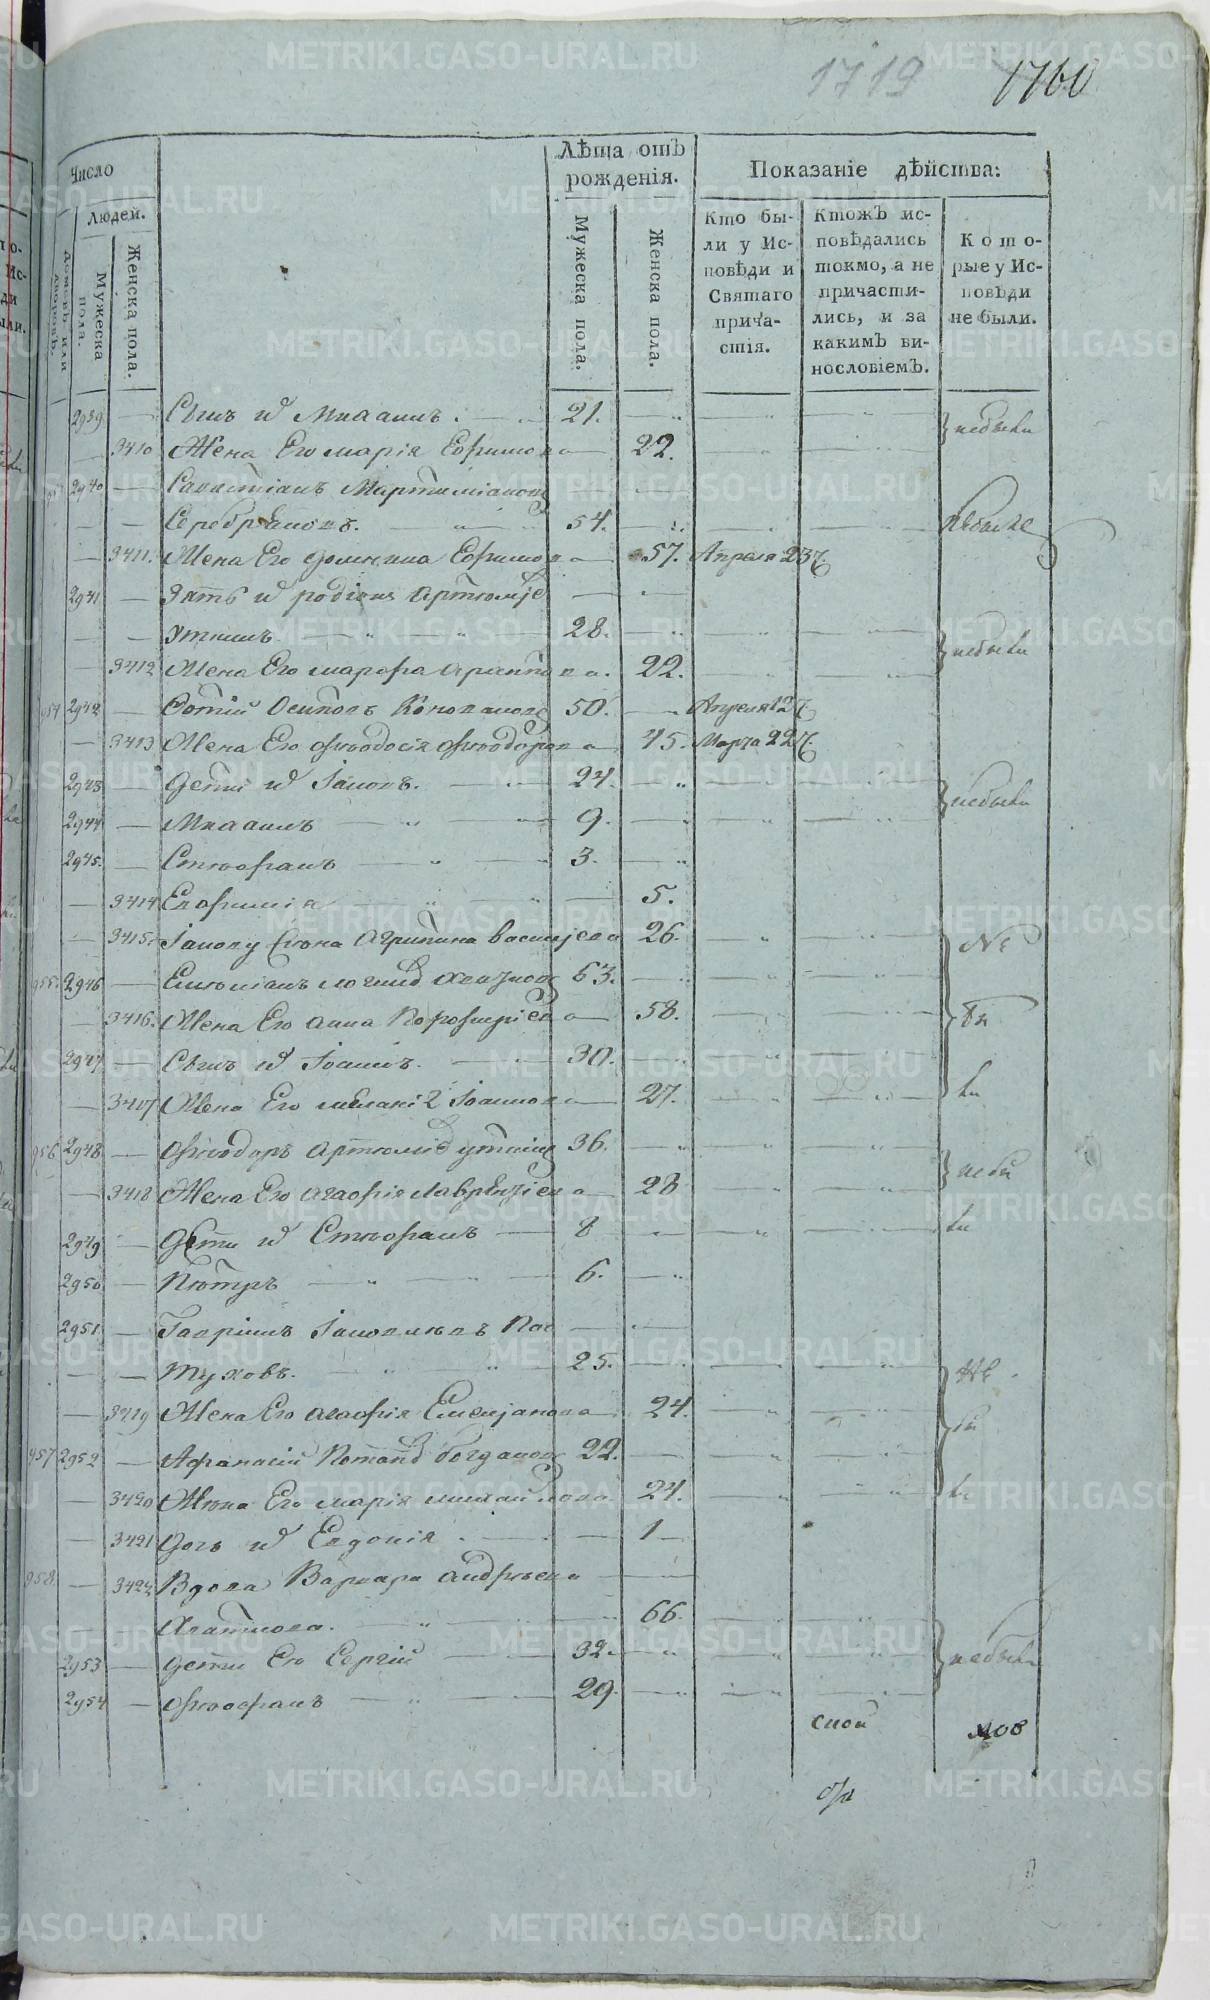 1719 1760
Число
Людей.
Домовъ или дворовъ.
Мужеска пола.
Женска пола.
Лѣта отъ рожденія.
Мужеска пола.
Женска пола.
Показаніе дѣйства:
Кто были у Исповѣди и Святаго причастія.
Ктожъ исповѣдались токмо, а не причастились, и за какимъ винословіемъ.
Которые у Исповѣди не были.
2939 — Сынъ их Михаилъ 21. небыли
— 3410 Жена Его марія Ефимова 22.
2940 — Савастіанъ Мартиміановъ
Серебряковъ. 54. небылъ
— 3411. Жена Его домникиа Ефимова 57. Апреля 23
2941 — Зять их родіонъ Артемье
Уткинъ 28. небыли
— 3412 Жена Его марфа 22.
954 2942 — Фотій Осиповъ Коновалов 50. Апреля 12
— 3413 Жена Его Феодосія Феодорова 45. Марта 22
2943 — Дети их Іаковъ. 24. небыли
2944 — Михаилъ 9.
2945. — Стефанъ 3.
— 3414 Евфимія 5.
— 3415. Іакову жена Агрипина василјева 26. Не
955. 2946 — Емеліанъ 63.
— 3416. Жена Его анна Порфиріева 58. бы
2947 — Сынъ их Іоаннъ. 30.
— 3417 Жена Его меланія Іоаннова 27. ли
956 2948. — Феодоръ Артемьев уткин 36. небы
— 3418 Жена Его Агафія Лаврентіева 28
2949 — Дети их Стефанъ 8 ли
2950 — Петръ 6.
2951. — Гавріилъ Іаковлевъ Пас
туховъ. 25. Не
— 3419 Жена Его агафія Емелјанова 24. бы
957 2952 — Афанасій Потапов богданов 22.
— 3420 Жена Его марія михайлова 24. ли
— 3421 Дочь их Евдокія 1
958. — 3422 Вдова Варвара андреева
66.
2953 — Дети Ея Сергій 32. небыли
2954 — Феофанъ 29.